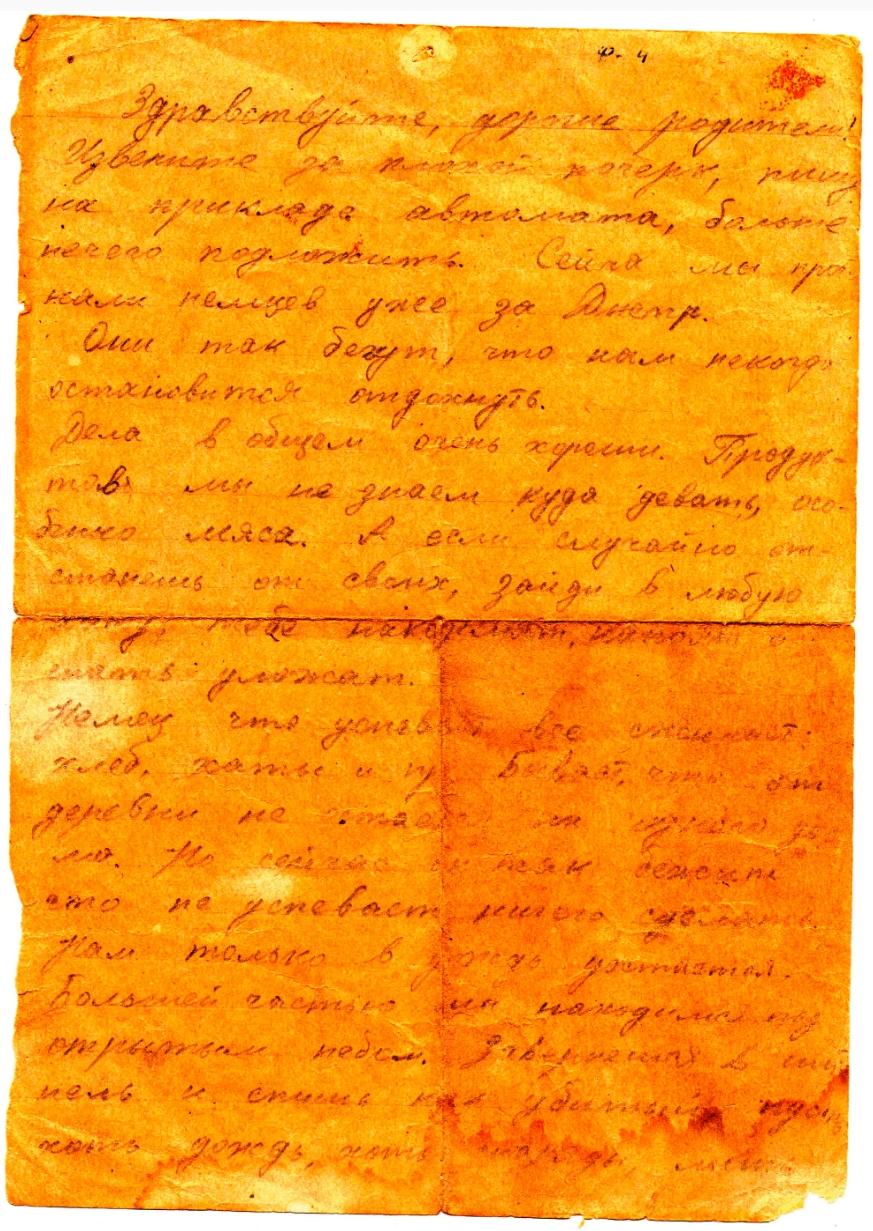 ф. 4
Здравствуйте, дорогие родители!
Извените за плохой почерк, пишу
на прикладе автомата, больше
нечего подложить. Сейча мы про-
нали немцев уже за Днестр.
Они так бегут, что нам некогда
остановится отдохнуть.
Дела в общем очень хороши. Продук-
тов мы не знаем куда девать, осо-
бенно мяса. А если случайно от-
станешь от своих, зайди в любую
тебе накормят, напоят и
спать уложат.
Немец что успевает все сжигает:
хлеб, хаты и пр. Бывает, что от
деревни не
Но сейчас он так бежит
что не успевает ничего сделать
Нам только в дождь достается.
Большей частью мы находимся под
открытым небом. Завернешся в ши-
нель и спишь как убитый,
хоть дождь, хоть